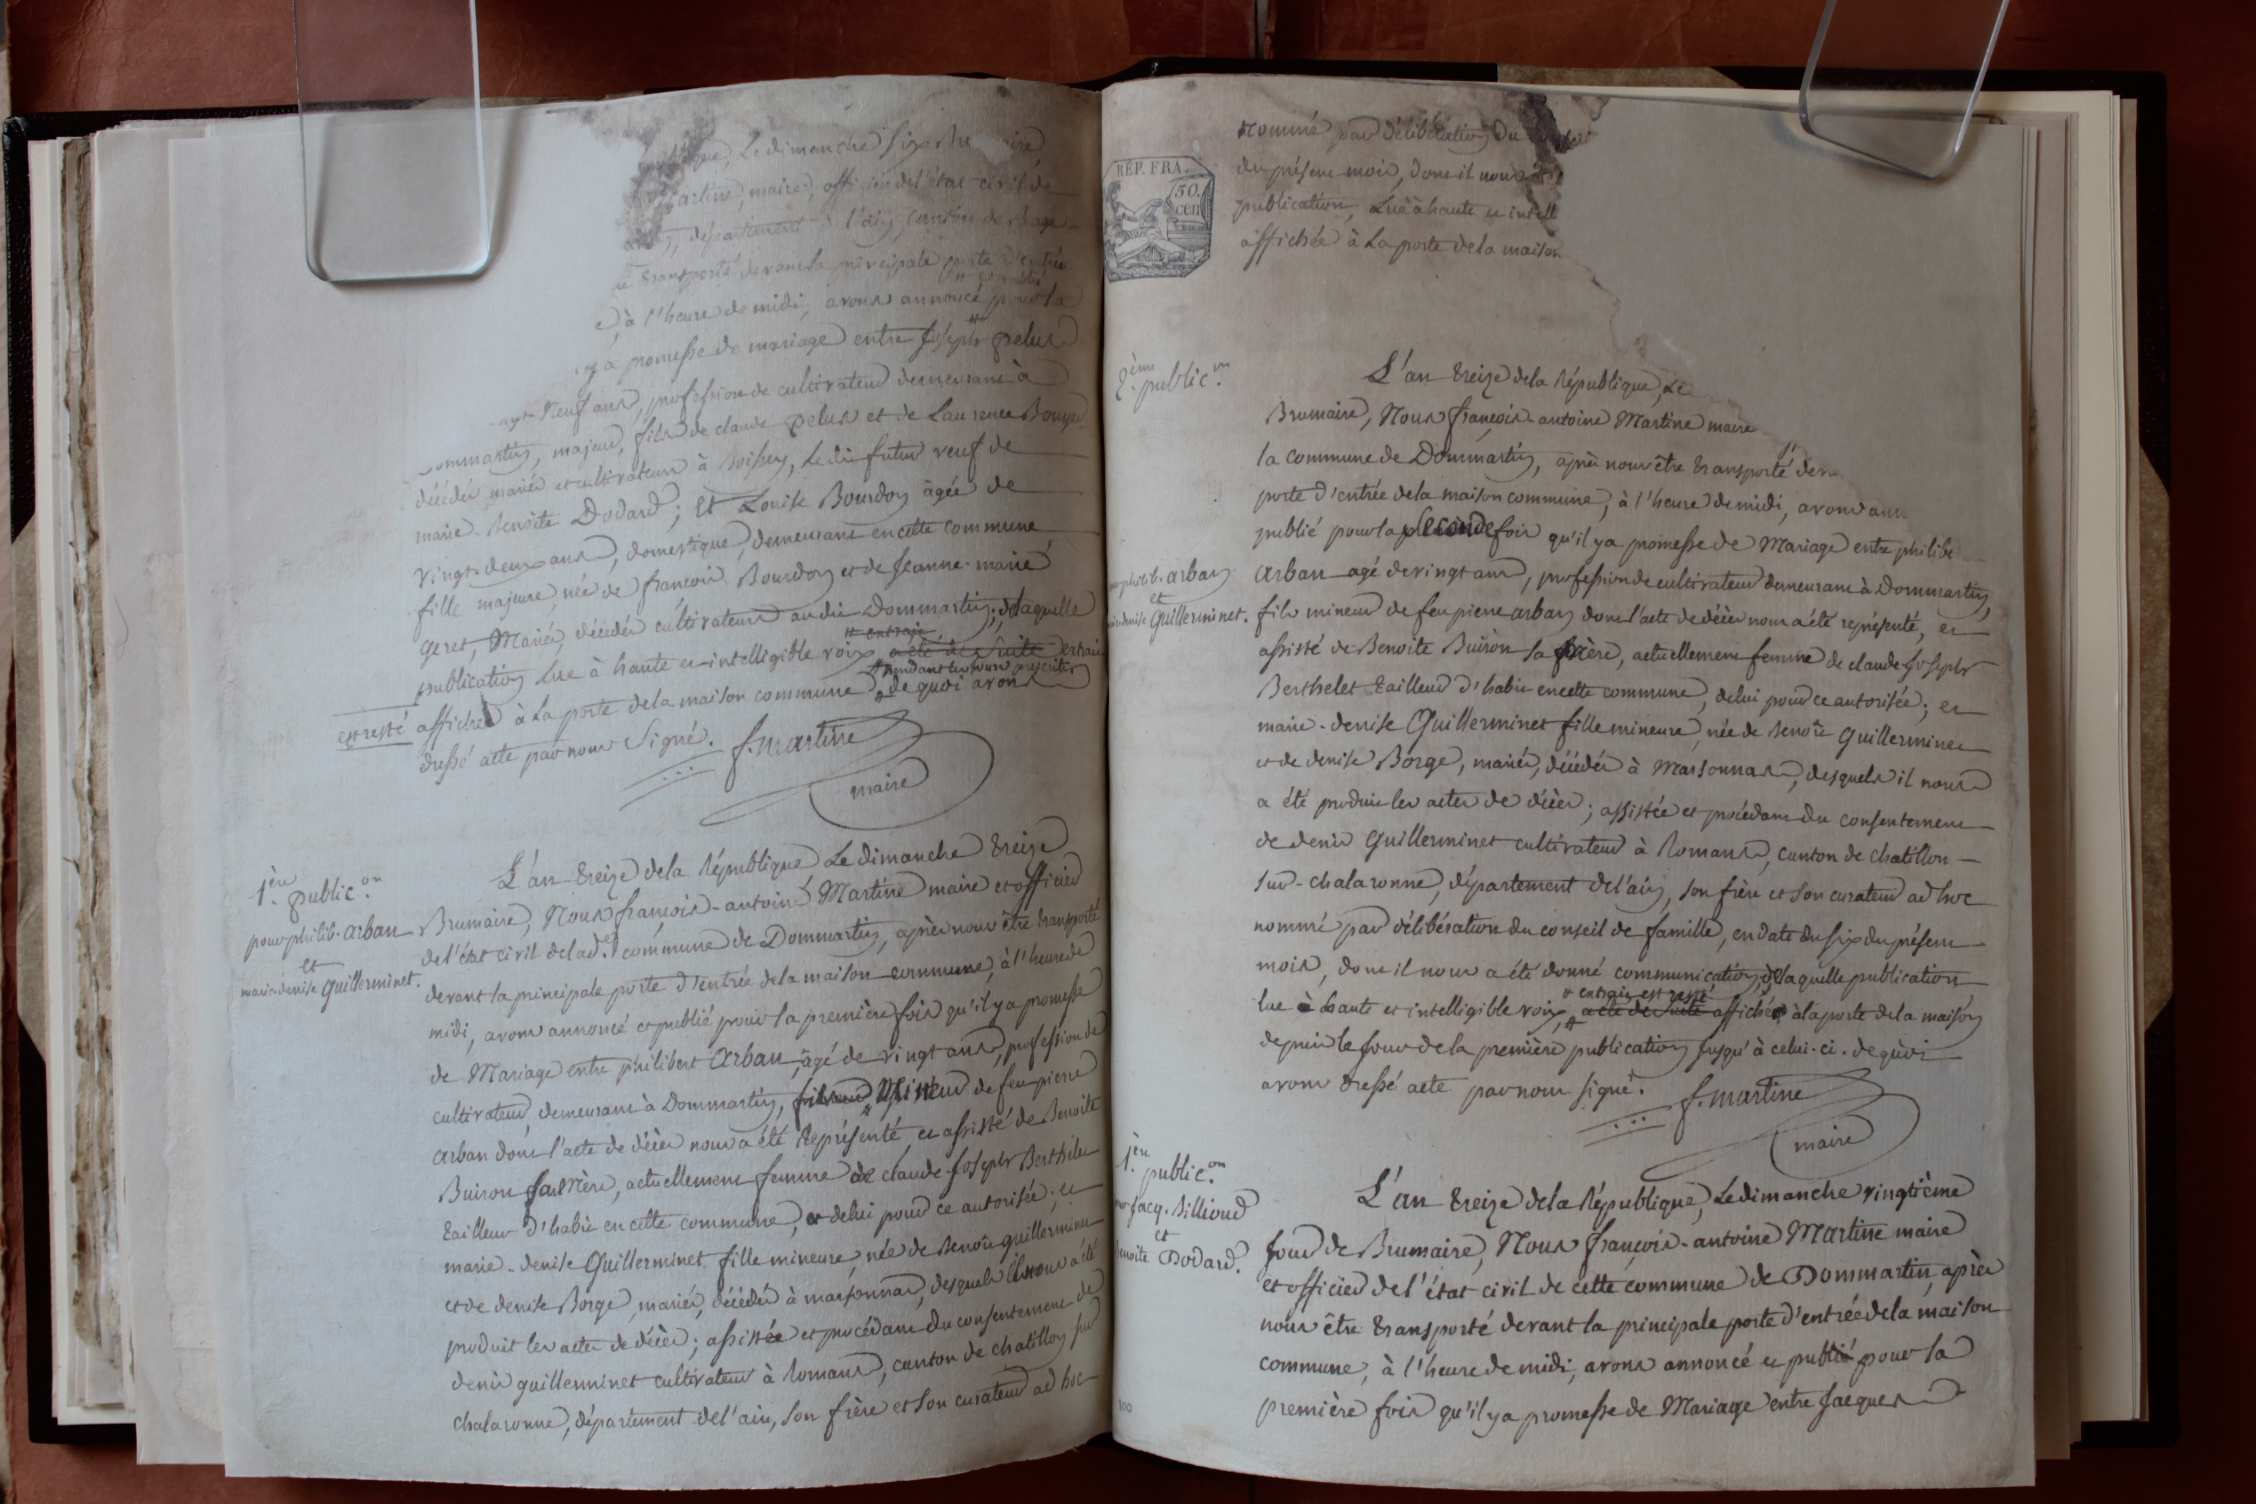 Le dimanche six
artine, maire, officier de l'état civil de
département de l'ain, canton de Bagé
transporté devant la principale porte d'entrée
et publié
à l'heure de midi, avons annoncé pour la
y a promesse de mariage entre Joseph pelus
neuf ans, profession de cultivateur demeurant à
ommartin, majeur, fils de claude pelus et de Laurence Bouyer
décédés mariés et cultivateurs à Boissey, Le dit futur veuf de
marie Benoîte Dodard; Et Louise Bourdon âgée de
vingt-deux ans, domestique, demeurant en cette commune,
fille majeure, née de françois Bourdon et de Jeanne-marie
geret, Mariés, décédés cultivateurs au dit Dommartin; de laquelle
publication lue à haute et intelligible voix, a été de suite extrait
pendant les jours prescrits
est resté affiché à la porte de la maison commune, de quoi avons
dressé acte par nous Signé. f. martine
maire
1.ère public.on
pour philib. arban
et
marie-denise Guillerminet.
L'an treize de la République Le dimanche treize
Brumaire, Nous françois-antoine Martine maire et officier
de l'état civil de lad. commune de Dommartin, après nous être transporté
devant la principale porte d'entrée de la maison commune, à l'heure de
midi, avons annoncé et publié pour la première fois qu'il y a promesse
de Mariage entre philibert Arban, âgé de vingt ans, profession de
cultivateur, demeurant à Dommartin, Mineur de feu pierre
arban dont l'acte de décès nous a été représenté et assisté de Benoite
Buiron sa mère, actuellement femme de claude-Joseph Berthelet
tailleur d'habit en cette commune, de lui pour ce autorisée; et
marie-denise Guillerminet fille mineure, née de Benoît guillerminet
et de denise Borge, mariés, décédés à marsonnas, desquels il nous a été
produit les actes de décès; assistée et procédant du consentement de
denis guillerminet cultivateur à Romans, canton de chatillon sur
chalaronne, département de l'ain, son frère et son curateur ad hoc
nommé par délibération du
du présent mois, dont il nous a
publication, Lue à haute et intell
affichée à La porte de la maison
RÉP. FRA.
50.
CEN
2.ème public.on
philib. arban
et
denise Guillerminet.
L'an treize de la République, Le
Brumaire, Nous françois-antoine Martine maire
la commune de Dommartin, après nous être transporté dev
porte d'entrée de la maison commune, à l'heure de midi, avons ann
publié pour la Seconde fois qu'il y a promesse de Mariage entre philibe
Arban agé de vingt ans, profession de cultivateur demeurant à Dommartin,
fils mineur de feu pierre arban dont l'acte de décès nous a été représenté, et
assisté de Benoite Buiron sa mère, actuellement femme de claude Joseph
Berthelet tailleur d'habit en cette commune, de lui pour ce autorisée; et
marie-denise Guillerminet fille mineure, née de Benoît Guillerminet
et de denise Borge, mariés, décédés à Marsonnas, desquels il nous
a été produit les actes de décès; assistée et procédant du consentement
de denis Guillerminet cultivateur à Romans, canton de chatillon
sur-chalaronne, département de l'ain, son frère et son curateur ad hoc
nommé par délibération du conseil de famille, en date du six du présent
mois, dont il nous a été donné communication; de laquelle publication
extrait est resté
lue à haute et intelligible voix, a été de suite affiché à la porte de la maison
depuis le jour de la première publication jusqu'à celui-ci. de quoi
avons dressé acte par nous signé. f. martine
maire
1.ère public.on
Jacq. Billioud
et
Benoite Dodard.
L'an treize de la République, Le dimanche vingtième
jour de Brumaire, Nous françois-antoine Martine maire
et officier de l'état civil de cette commune de Dommartin, après
nous être transporté devant la principale porte d'entrée de la maison
commune, à l'heure de midi, avons annoncé et publié pour la
première fois qu'il y a promesse de Mariage entre Jacques
100